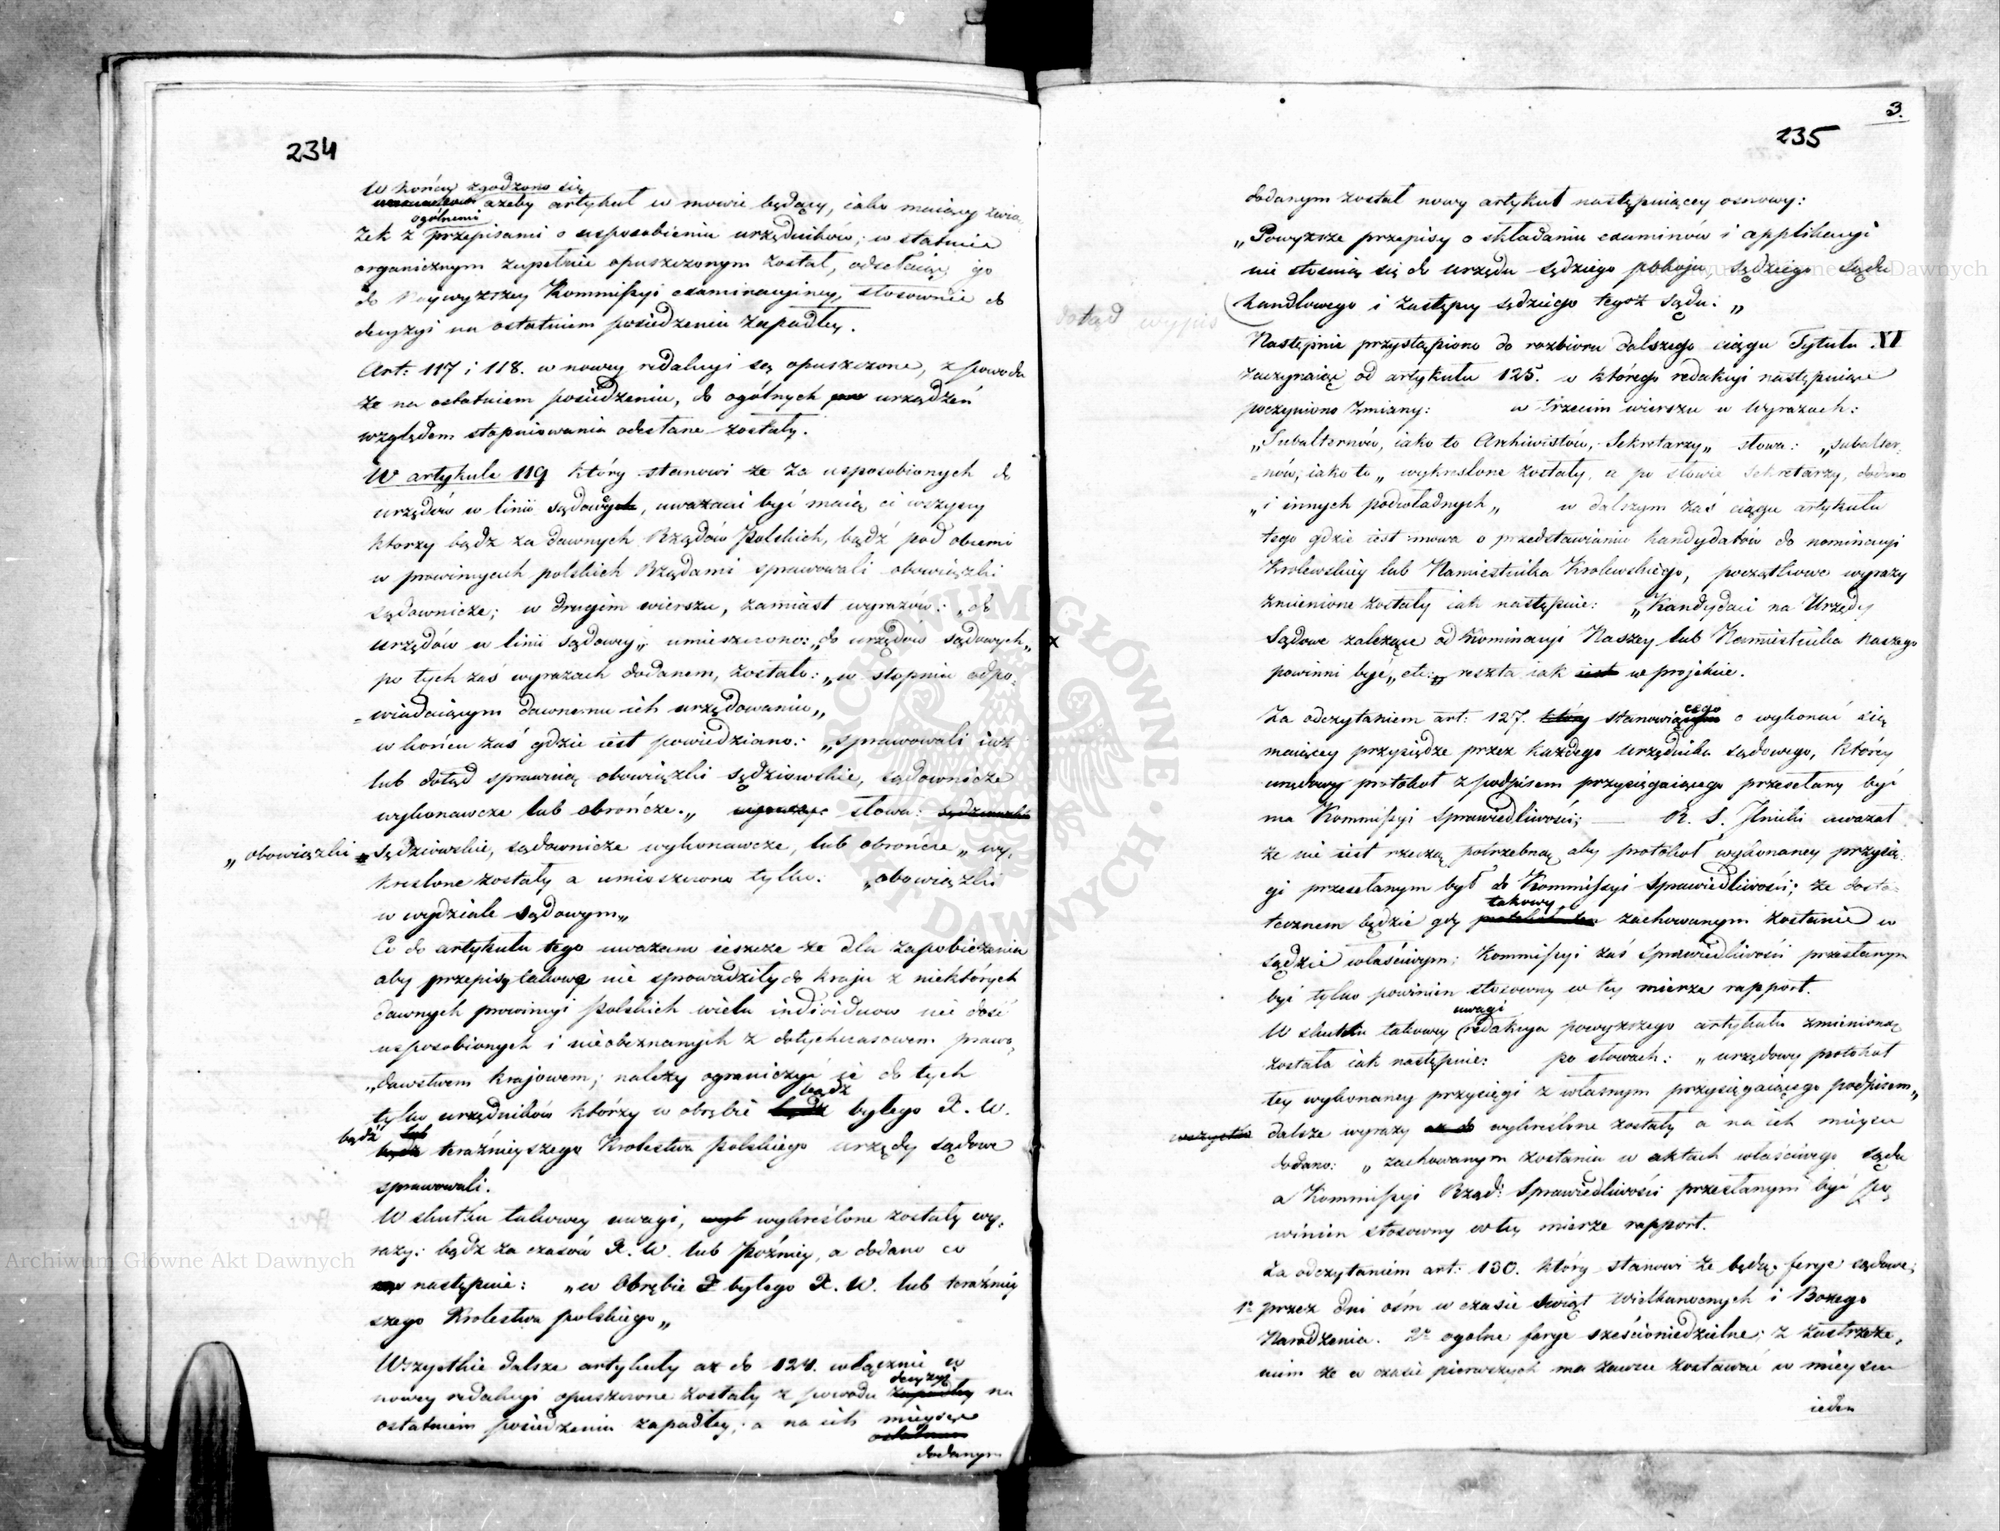 234
W końcu zgodzono się
ażeby artykuł w mowie będący, iako maiący zwią-
ogólnemi
zek z przepisami o usposobieniu urzędników, w statucie
organicznym zupełnie opuszczonym został, odsełaiąc go
do Naywyższey Kommissyi examinacyiney, stosownie do
decyzyi na ostatniem posiedzeniu zapadłey.
Art: 117 i 118. w nowey redakcyi są opuszczone, z powodu
że na ostatniem posiedzeniu, do ogólnych urządzeń
względem stopniowania odesłane zostały.
W artykule 119 który stanowi że za usposobionych do
urzędów w linii sądowey, uważani być maią ci wszyscy
którzy bądź za dawnych Rządów Polskich, bądź pod obcemi
w prowincyach polskich Rządami sprawowali obowiązki
sądownicze; w drugim wierszu, zamiast wyrazów: „do
urzędów w linii sądowey„ umieszczono: „do urzędów sądowych„
po tych zaś wyrazach dodanem, zostało: „w stopniu odpo-
-wiadaiącym dawnemu ich urzędowaniu„
w końcu zaś gdzie iest powiedziano: „sprawowali iuż
lub dotąd sprawuią obowiązki sędziowskie, sądownicze
wykonawcze lub obrończe.„ słowa:
„obowiązki sędziowskie, sądownicze wykonawcze, lub obrończe„ wy-
kreślone zostały a umieszczono tylko: „obowiązki
w wydziale sądowym„
Co do artykułu tego uważano ieszcze że dla zapobieżenia
aby przepisy takowe nie sprowadziły do kraju z niektórych
dawnych prowincyi Polskich wielu individuów nie dość
usposobionych i nieobeznanych z dotychczasowem prawo-
„dawstwem krajowem; należy ograniczyć ie do tych
bądź
tylko urzędników którzy w obrębie byłego X. W.
bądź teraźnieyszego Królestwa polskiego urzędy sądowe
sprawowali.
W skutku takowey uwagi, wykreślone zostały wy-
razy: bądź za czasów X. W. lub później, a dodano co
następuie: „w Obrębie byłego X. W. lub teraźniey
szego Królestwa polskiego„
Wszystkie dalsze artykuły aż do 124. włącznie w
decyzyi
nowey redakcyi opuszczone zostały z powodu na
ostatniem posiedzeniu zapadłey; a na ich mieysce
dodanym
3.
235
dodanym został nowy artykuł następuiącey osnowy:
„Powyższe przepisy o składaniu examinów i applikacyi
nie stosuią się do urzędu sędziego pokoju, sędziego sądu
handlowego i zastępcy sędziego tegoż sądu.„
dotąd wypis
Następnie przystąpiono do rozbioru dalszego ciągu Tytułu XI
zaczynaiąc od artykułu 125. w którego redakcyi następuiące
poczyniono zmiany: w trzecim wierszu w wyrazach:
„Subalternów, iako to Archiwistów, Sekretarzy„ słowa: „subalter-
-nów, iako to„ wykreślone zostały, a po słowie Sekretarzy, dodano
„i innych podwładnych„ w dalszym zaś ciągu artykułu
tego gdzie iest mowa o przedstawianiu kandydatów do nominacyi
Królewskiéy lub Namiestnika Królewskiego, początkowe wyrazy
zmienione zostały iak następuie: „Kandydaci na Urzędy
x
Sądowe zależące od Nominacyi Naszey lub Namiestnika naszego
powinni być„ etc: reszta iak w projekcie.
Za odczytaniem art: 127. stanowiącego o wykonać się
maiącey przysiędze przez każdego urzędnika sądowego, którey
urzędowy protokół z podpisem przysięgaiącego przesełany być
ma Kommissyi Sprawiedliwości; — R. S. Jlnicki uważał
że nie iest rzeczą potrzebną aby protokół wykonaney przysię-
gi przesełanym był do Kommissyi Sprawiedliwości; że dosta-
takowy
tecznem będzie gdy zachowanym zostanie w
sądzie właściwym; Kommissyi zaś Sprawiedliwości przesłanym
być tylko powinien stosowny w tey mierze rapport.
uwagi
W skutku takowey redakcya powyższego artykułu zmienioną
została iak następuie: po słowach: „urzędowy protokół
tey wykonaney przysięgi z własnym przysięgaiącego podpisem„
dalsze wyrazy wykreślone zostały a na ich mieysce
dodano: „zachowanym zostanie w aktach właściwego sądu
a Kommissyi Rząd: Sprawiedliwości przesłanym być po-
winien stosowny w tey mierze rapport.
Za odczytaniem art: 130. który stanowi że będą ferye sądowe;
1º przez dni ośm w czasie Swiąt Wielkanocnych i Bożego
Narodzenia. 2º ogólne ferye sześcioniedzielne; z zastrzeże-
niem że w czasie pierwszych ma zawsze zostawać w mieyscu
ieden